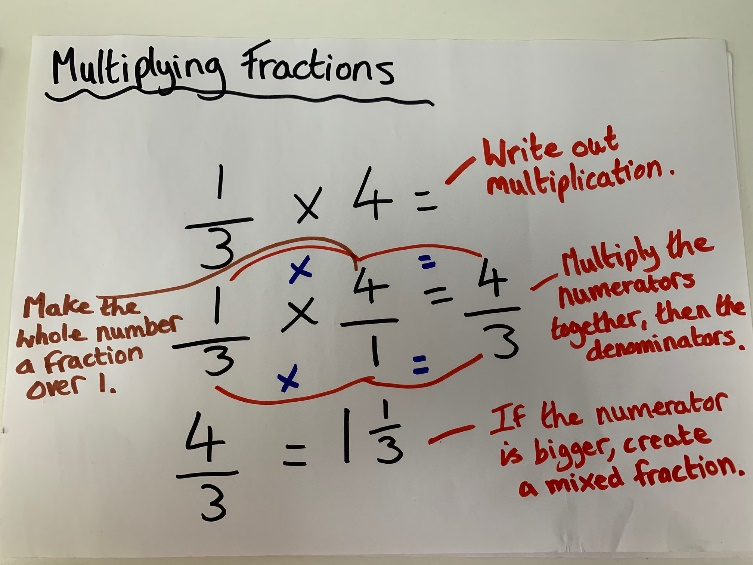 Multiplying Fractions
1/3 × 4 =
Write out
multiplication.
Make the
whole number
a fraction
over 1.
× =
1/3 × 4/1 = 4/3
× =
Multiply the
numerators
together, then the
denominators.
4/3 = 1 1/3
If the numerator
is bigger, create
a mixed fraction.